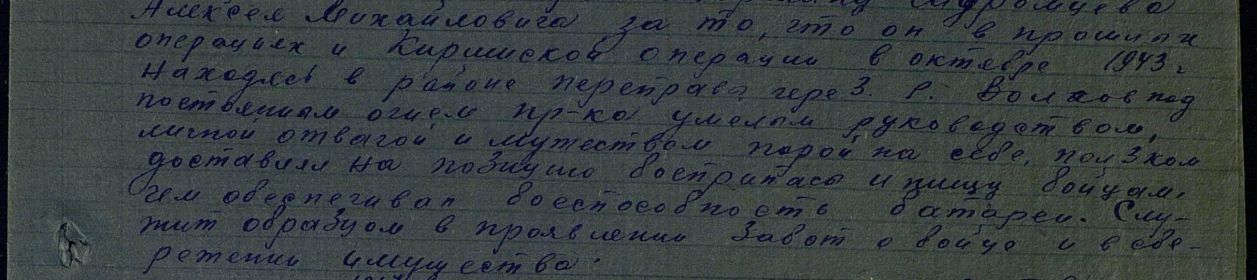 Алексея Михайловича за то, что он в прошлых
операциях и Киришской операции в октябре 1943 г
находясь в районе переправы через. р. Волхов под
постоянным огнем пр-ка умелым руководством,
личной отвагой и мужеством порой на себе, ползком
доставлял на позицию боеприпасы и пищу бойцам,
чем обеспечивал боеспособность батареи. Слу-
жит образцом в проявлении забот о бойце и в сбе-
режении имущества.